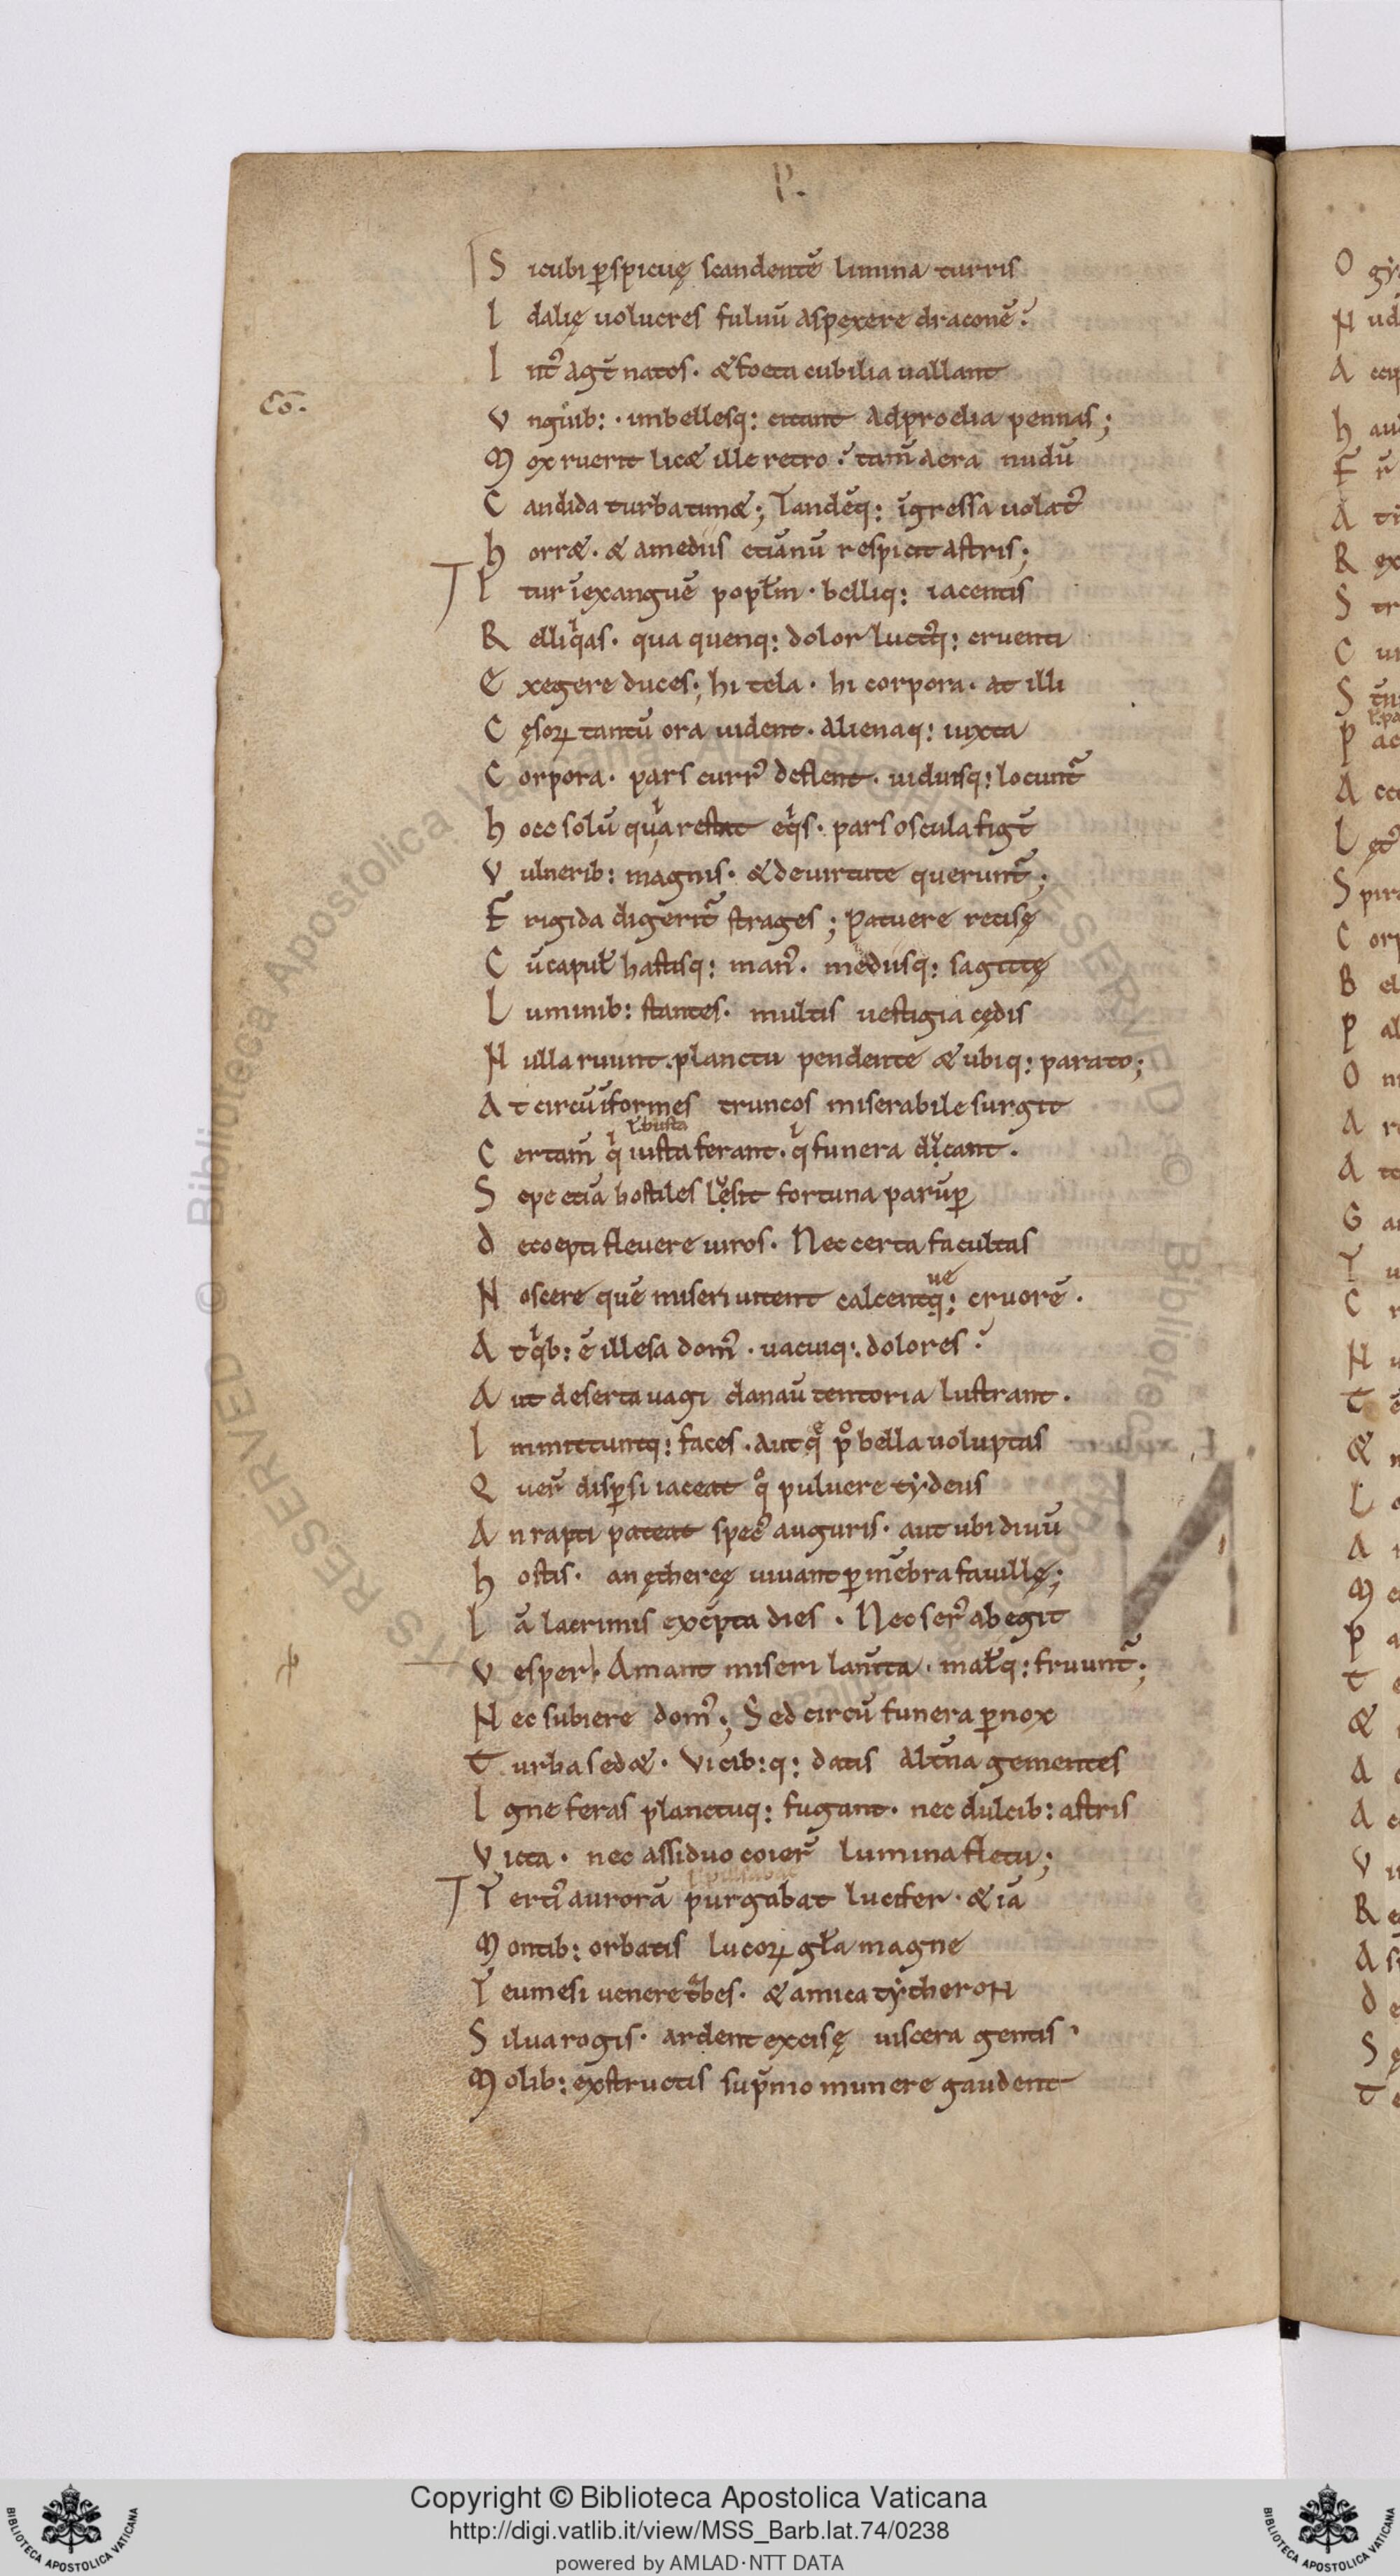 P.
S icubi ꝑspicuę scandentē limina turris
I dalię uolucres fuluū aspexere draconē?
I nt᷑ agt̄ natos· & foeta cubilia uallant
Cō.
V nguib: · imbellesq: citant adproelia pennas;
M ox ruerit lic& ille retro ? tam̄ aera nudū
C andida turba tim&; Tandēq: īgressa uolat᷑
h orr&· & amediis etiānū respicit astris;
I tur īexanguē popl̄m · belliq: iacentis
R elliqͥas· qua quenq: dolor luctꝰq: cruenti
E xegere duces; hi tela· hi corpora· at illi
C ęsoꝝ tantū ora uident· alienaq: iuxta
C orpora· pars currꝰ deflent· uiduisq: locunt᷑
h occ solū quͥa restat eqͥs· pars oscula figt̄
V ulnerib: magnis· & deuirtute querunt᷑;
F rigida digerit᷑ strages; Patuere recisę
C ūcapul̄ hastisq: manꝰ· mediisq: sagittę
L uminib: stantes· multis uestigia cędis
N ulla ruunt. planctu pendente & ubiq: parato;
A t circūīformes truncos miserabile surgit
ł busta
C ertam̄ qͥ iusta ferant· qͥ funera dicant·
S epe etiā hostiles lęsit fortuna parūꝑ
D ecoepti fleuere uiros· Nec certa facultas
ue
N oscere quē miseri uitent calcentq: cruorē·
A t qͥb: ē illesa domꝰ· uacuiq: dolores?
A ut deserta uagi danaū tentoria lustrant·
I mmittuntq: faces· aut q̄ pꝰ bella uoluptas
Q uer̄ disꝑsi iaceat qͦ puluere tẏdeus
A n rapti pateat specꝰ auguris· aut ubi diuū
h ostis· an ęthereę uiuant ꝑmēbra fauillę;
I ā lacrimis excēpta dies· Nec serꝰ abegit
V esper· Amant miseri lam̄ta· mal̄q: fruunt᷑;
N ec subiere domꝰ; Sed circū funera ꝑnox
T urba sed&· Vicib:q: datis alt̄na gementes
I gne feras planctuq: fugant· nec dulcib: astris
V icta· nec assiduo coier̄ lumina fletu;
T ertꝰ aurorā purgabat lucifer· & iā
M ontib: orbatis lucoꝝ gl̄a magne
T eumesi uenere tͣbes· & amica cẏtheroN
S ilua rogis· ardent excisę uiscera gentis
M olib: exstructis sup̄mo munere gaudent
Copyright © Biblioteca Apostolica Vaticana
http://digi.vatlib.it/view/MSS_Barb.lat.74/0238
powered by AMLAD·NTT DATA